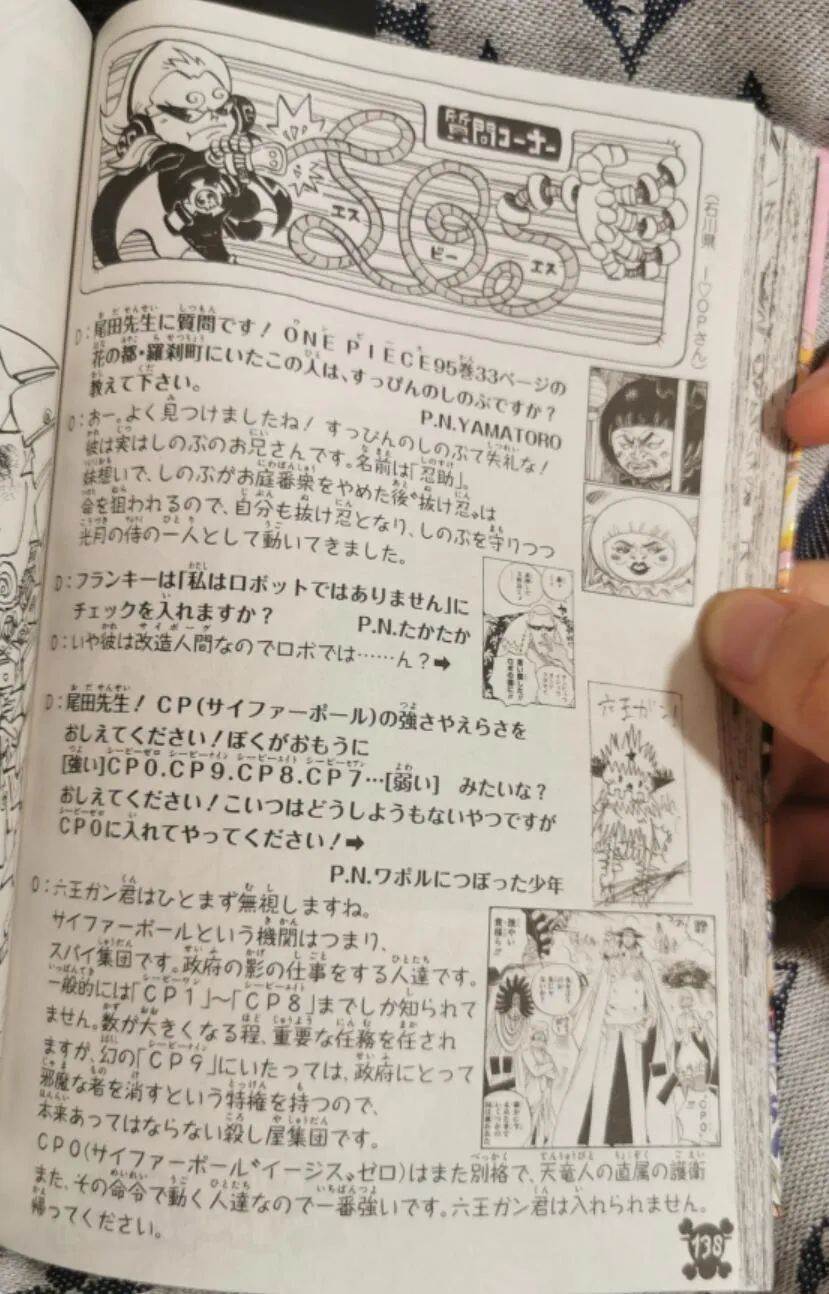 質問コーナー
エス
ビー
エス
(石川県 I♡OPさん)
D:尾田先生に質問です! ONE PIECE95巻33ページの
花の都・羅刹町にいたこの人は、すっぴんのしのぶですか?
教えて下さい。
P.N.YAMATORO
O:おー。よく見つけましたね! すっぴんのしのぶて失礼な!
彼は実はしのぶのお兄さんです。名前は「忍助」。
妹想いで、しのぶがお庭番衆をやめた後"抜け忍"は
命を狙われるので、自分も抜け忍となり、しのぶを守りつつ
光月の侍の一人として動いてきました。
D:フランキーは「私はロボットではありません」に
チェックを入れますか?
P.N.たかたか
O:いや彼は改造人間なのでロボでは……ん?➡
D:尾田先生! CP(サイファーポール)の強さやえらさを
おしえてください!ぼくがおもうに
[強い]CP0.CP9.CP8.CP7…[弱い] みたいな?
おしえてください!こいつはどうしようもないやつですが
CP0に入れてやってください!➡
P.N.ワポルにつぼった少年
六王ガン!
O:六王ガン君はひとまず無視しますね。
サイファーポールという機関はつまり、
スパイ集団です。政府の影の仕事をする人達です。
一般的には「CP1」~「CP8」までしか知られて
ません。数が大きくなる程、重要な任務を任され
ますが、幻の「CP9」にいたっては、政府にとって
邪魔な者を消すという特権を持つので、
本来あってはならない殺し屋集団です。
CP0(サイファーポール"イージス"ゼロ)はまた別格で、天竜人の直属の護衛
また、その命令で動く人達なので一番強いです。六王ガン君は入れられません。
帰ってください。
138